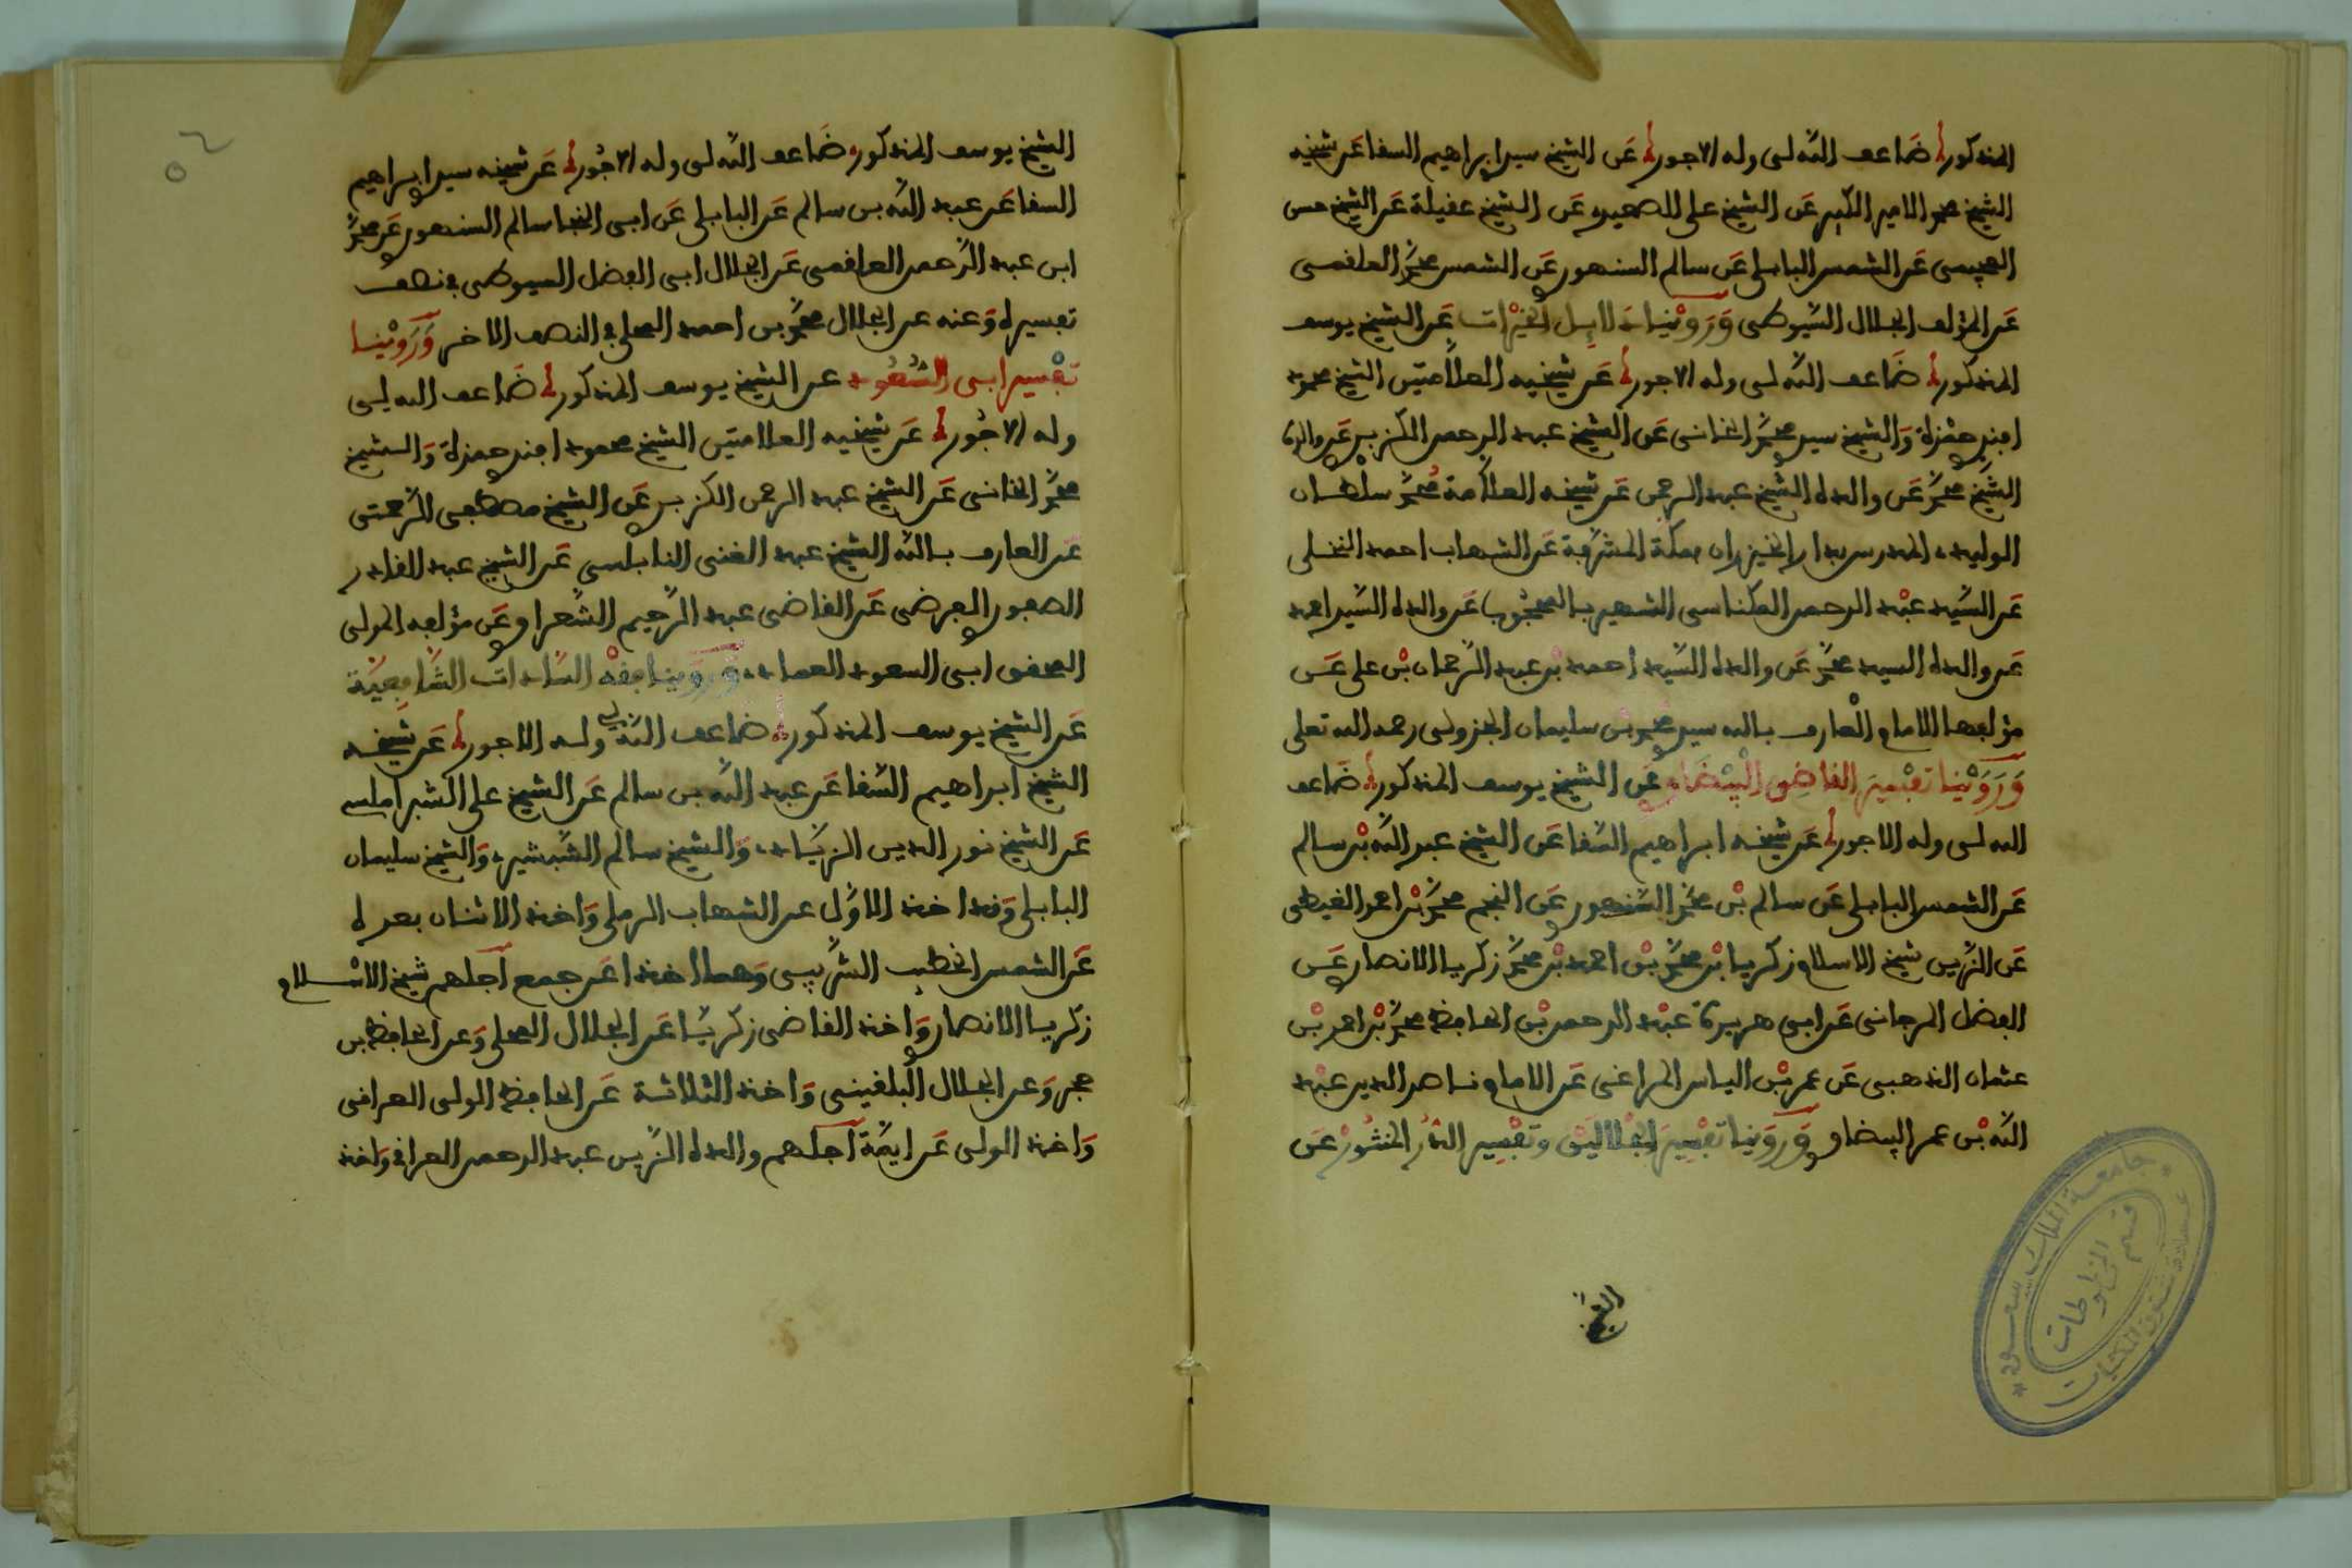 المذكور ضاعف الله لى وله الاجور عن الشيخ سيد ابراهيم السفا عن شيخه
الشيخ محمد الامير الكبير عن الشيخ على الصعيدى عن الشيخ عقيلة عن الشيخ حسن
العجيمى عن الشمس البابلى عن سالم السنهورى عن الشمس محمد العلقمى
عن المؤلف الجلال السيوطى وروينا دلايل الخيرات عن الشيخ يوسف
المذكور ضاعف الله لى وله الاجور عن شيخيه العلامتين الشيخ محمود
افندى حمزة والشيخ سيدى محمد الخانى عن الشيخ عبد الرحمن الكزبرى عن والده
الشيخ محمد عن والده الشيخ عبد الرحمن عن شيخه العلامة محمد سلطان
الوليدى المدرس بدار الخيزران بمكة المشرفة عن الشهاب احمد النخلى
عن السيد عبد الرحمن المكناسى الشهير بالمحجوب عن والده السيد احمد
عن والده السيد محمد عن والده السيد احمد بن عبد الرحمان بن على عن
مؤلفها الامام العارف بالله سيدى محمد بن سليمان الجزولى رحمه الله تعلى
وروينا تفسير القاضى البيضاوى عن الشيخ يوسف المذكور ضاعف
الله لى وله الاجور عن شيخه ابراهيم السفا عن الشيخ عبد الله بن سالم
عن الشمس البابلى عن سالم بن محمد السنهورى عن النجم محمد بن احمد الغيطى
عن الزين شيخ الاسلام زكريا بن محمد بن احمد بن محمد زكريا الانصارى عن
الفضل المرجانى عن ابى هريرة عبد الرحمن بن الحافظ محمد بن احمد بن
عثمان الذهبى عن عمر بن الياس المراغى عن الامام ناصر الدين عبد
الله بن عمر البيضاوى وروينا تفسير الجلالين وتفسير الدر المنثور عن
الشيخ
الشيخ يوسف المذكور ضاعف الله لى وله الاجور عن شيخه سيد ابراهيم
السفا عن عبد الله بن سالم عن البابلى عن ابى النجا سالم السنهورى عن محمد
ابن عبد الرحمن العلقمى عن الجلال ابى الفضل السيوطى في نصف
تفسيره وعنه عن الجلال محمد بن احمد المحلى في النصف الاخر وروينا
تفسير ابى السعود عن الشيخ يوسف المذكور ضاعف الله لى
وله الاجور عن شيخيه العلامتين الشيخ محمود افندى حمزة والشيخ
محمد الخانى عن الشيخ عبد الرحمن الكزبرى عن الشيخ مصطفى الرحمتى
عن العارف بالله الشيخ عبد الغنى النابلسي عن الشيخ عبد القادر
الصفورى الفرضى عن القاضى عبد الرحيم الشعراوى عن مؤلفه المولى
المحقق ابى السعود العمادى وروينا فقه السادات الشافعية
عن الشيخ يوسف المذكور ضاعف الله لى وله الاجور عن شيخه
الشيخ ابراهيم السفا عن عبد الله بن سالم عن الشيخ على الشبراملسى
عن الشيخ نور الدين الزيادى والشيخ سالم الشبشيرى والشيخ سليمان
البابلى وقد اخذ الاول عن الشهاب الرملى واخذ الاثنان بعده
عن الشمس الخطيب الشربينى وهما اخذا عن جمع اجلهم شيخ الاسلام
زكريا الانصارى واخذ القاضى زكريا عن الجلال المحلى وعن الحافظ بن
حجر وعن الجلال البلقينى واخذ الثلاثة عن الحافظ الولى العراقى
واخذ الولى عن ايمة اجلهم والده الزين عبد الرحمن العراقى واخذ
٥٢
جامعة الملك سعود
قسم المخطوطات
عمادة شئون المكتبات